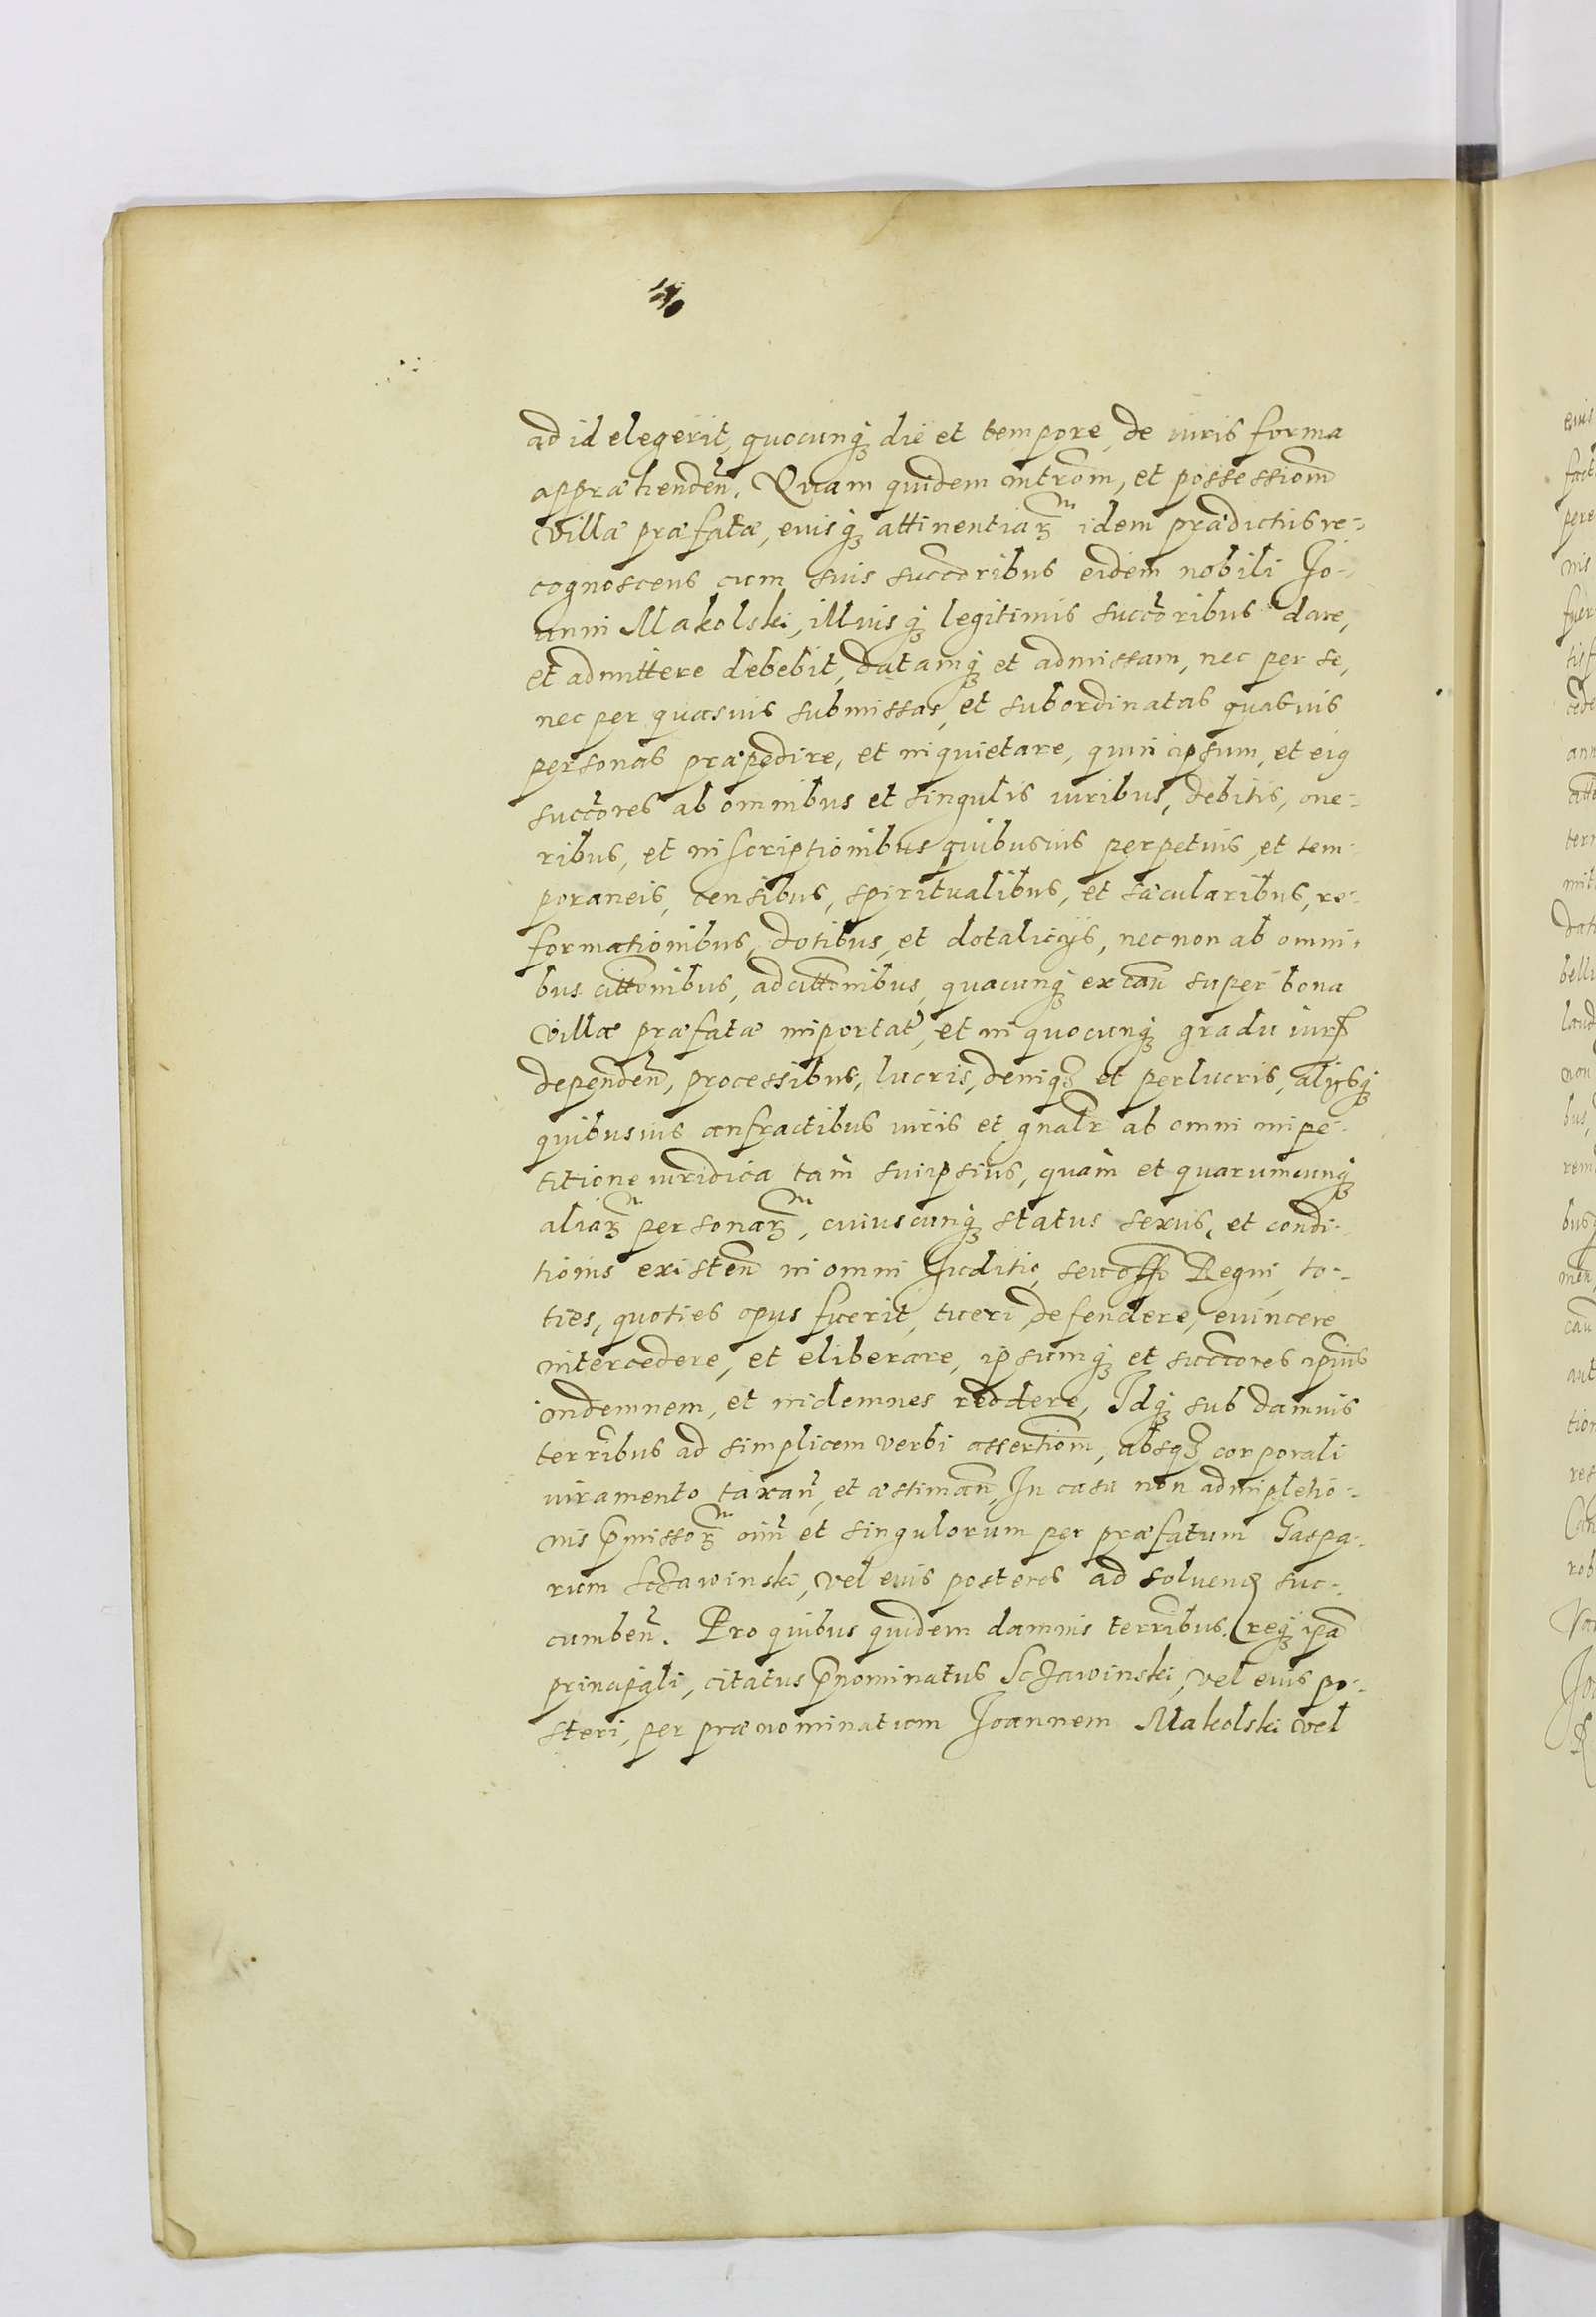 ad id elegerit, quocunq; die et tempore, de iuris forma
appræhendeñ. Quam quidem intrōm, et possessiōm
Villæ præfatæ, eiusq; attinentiaꝝ idem prædictus re-
cognoscens cum suis succōribus eidem nobili Jo-
anni Makolski, illiusq; legitimis succōribus dare,
et admittere debebit, datamq; et admissam, nec per se,
nec per quasuis submissas, et subordinatas quasuis
personas præpedire, et inquietare, quin ipsum, et eiꝰ
succōres ab omnibus et singulis iuribus, debitis, one-
ribus, et inscriptionibus quibusuis perpetuis, et tem-
poraneis, censibus, spiritualibus, et sæcularibus, re-
formationibus, dotibus, et dotalicijs, nec non ab omni-
bus cittōnibus, adcittōnibus, quacunq; ex cāu super bona
Villæ præfatæ importat̄, et in quocunq; gradu iur̄
dependeñ, processibus, lucris, deniq; et perlucris, alijsq;
quibusuis anfractibus iuris et gnalr̄ ab omni impe-
titione iuridica tam suiipsius, quam et quarumcunq;
aliaꝝ personaꝝ, cuiuscunq; status sexus, et condi-
tionis existeñ in omni Juditio, seu offo Regni, to-
ties, quoties opus fuerit, tueri, defendere, euincere
intercedere, et eliberare, ipsumq; et succōres ipīus
indemnem, et indemnes reddere, Idq; sub damnis
terrībus ad simplicem verbi assertiōm, absq; corporali
iuramento taxañ, et æstimañ, In casu non adimpletio-
nis p̄missoꝝ oīm et singulorum per præfatum Gaspa-
rum Sczawinski, vel eius posteros ad soluend̄ suc-
cumbeñ. Pro quibus quidem damnis terrībus, req; ip̄a
principali, citatus p̄nominatus Sczawinski, vel eius po-
steri, per prænominatum Joannem Makolski vel